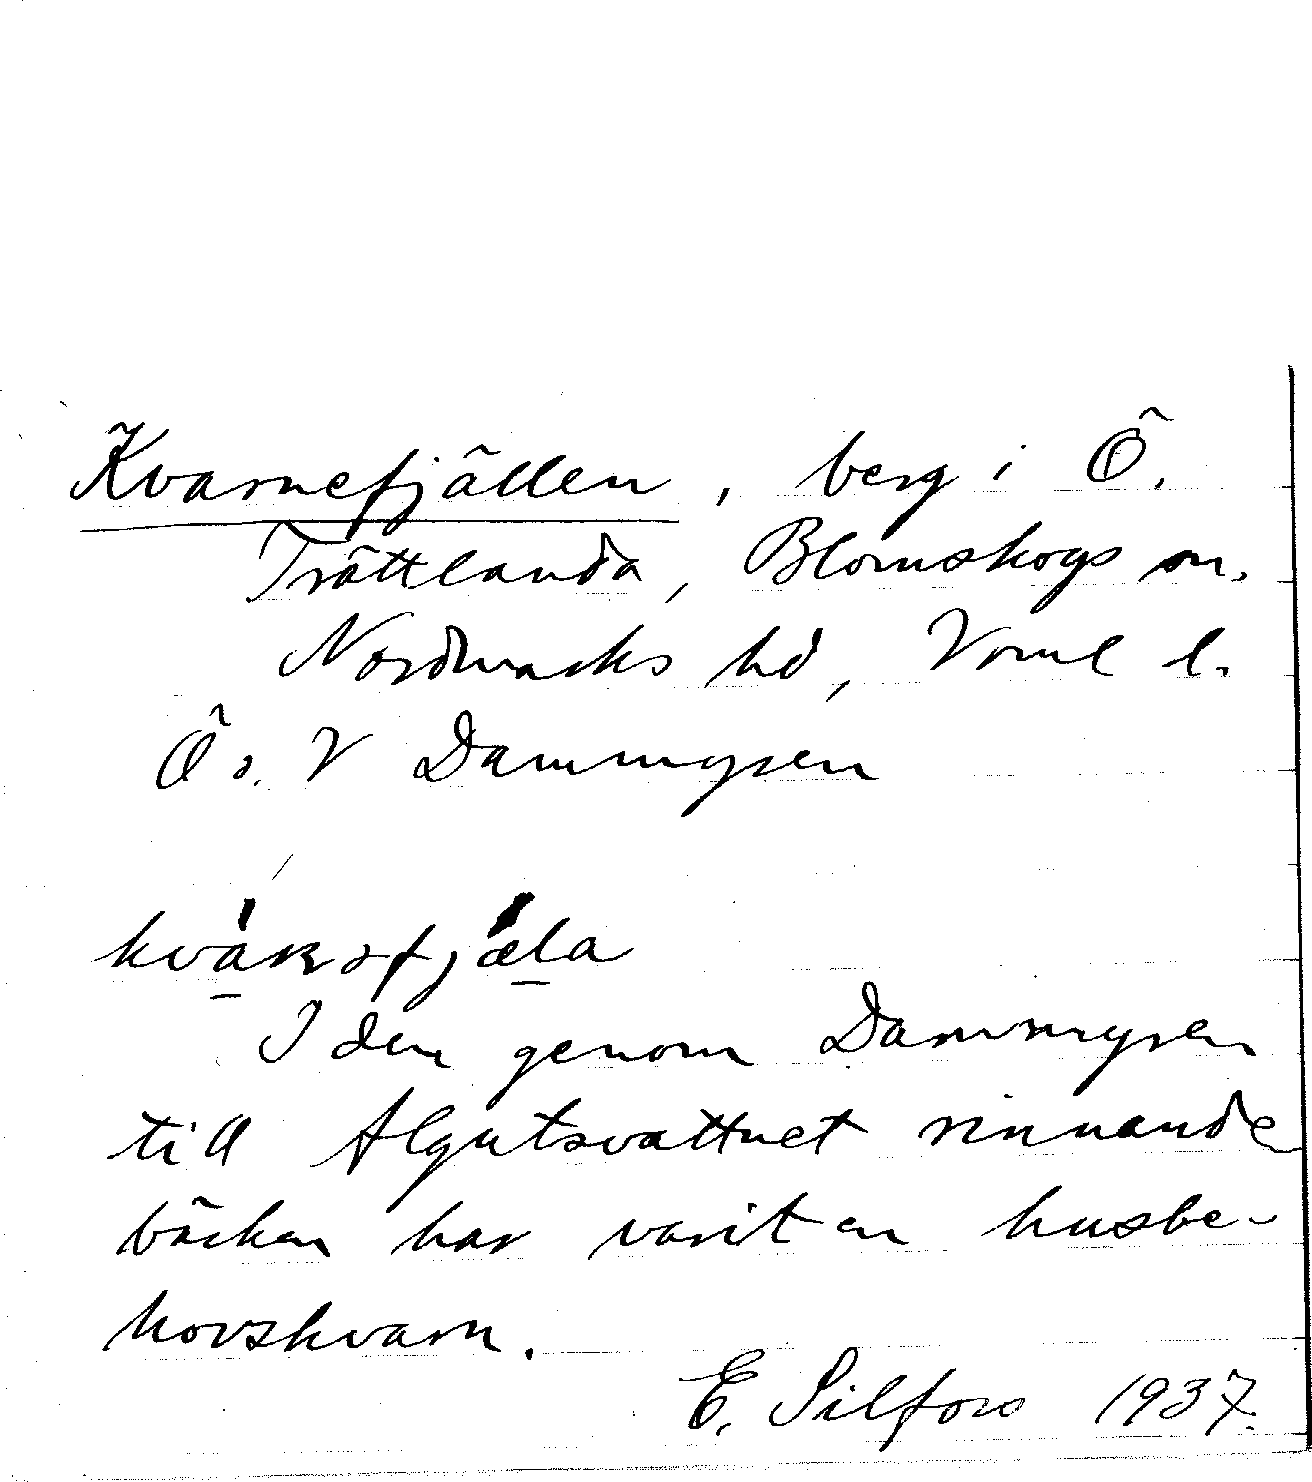 Kvarnefjällen, berg i Ö.
Trättlanda, Blomskogs sn.
Nordmarks hd, Vrml l.
Ö s. V Dammyren
I den genom Dammyren
till Algutsvattnet rinnande
bäcken har varit en husbe-
hovskvarn.
E. Silfors 1937.